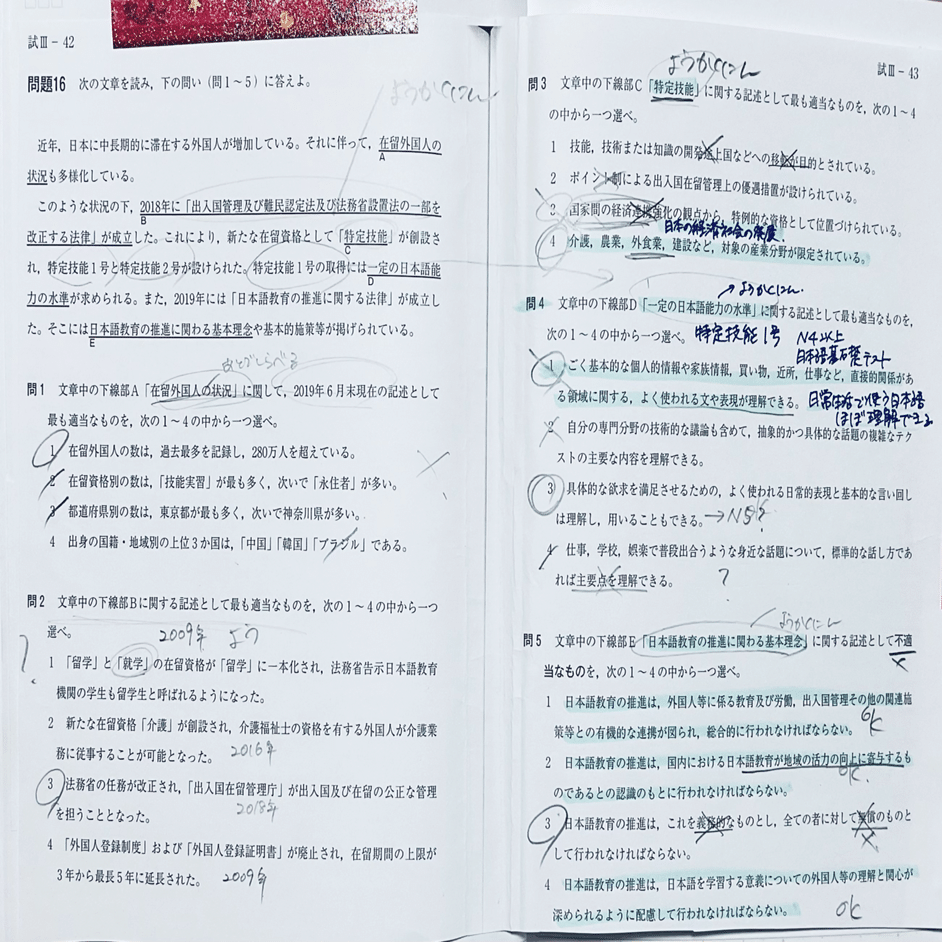 試Ⅲ－42
問題16 次の文章を読み，下の問い（問1～5）に答えよ。
ようかくにん
近年，日本に中長期的に滞在する外国人が増加している。それに伴って，在留外国人の
A
状況も多様化している。
このような状況の下，2018年に「出入国管理及び難民認定法及び法務省設置法の一部を
B
改正する法律」が成立した。これにより，新たな在留資格として「特定技能」が創設さ
C
れ，特定技能1号と特定技能2号が設けられた。特定技能1号の取得には一定の日本語能
D
力の水準が求められる。また，2019年には「日本語教育の推進に関する法律」が成立し
た。そこには日本語教育の推進に関わる基本理念や基本的施策等が掲げられている。
E
あとでしらべる
問1 文章中の下線部A「在留外国人の状況」に関して，2019年6月末現在の記述として
最も適当なものを，次の1～4の中から一つ選べ。
1 在留外国人の数は，過去最多を記録し，280万人を超えている。
2 在留資格別の数は，「技能実習」が最も多く，次いで「永住者」が多い。
3 都道府県別の数は，東京都が最も多く，次いで神奈川県が多い。
4 出身の国籍・地域別の上位3か国は，「中国」「韓国」「ブラジル」である。
問2 文章中の下線部Bに関する記述として最も適当なものを，次の1～4の中から一つ
選べ。
2009年 よう
?
1 「留学」と「就学」の在留資格が「留学」に一本化され，法務省告示日本語教育
機関の学生も留学生と呼ばれるようになった。
2 新たな在留資格「介護」が創設され，介護福祉士の資格を有する外国人が介護業
務に従事することが可能となった。 2016年
3 法務省の任務が改正され，「出入国在留管理庁」が出入国及び在留の公正な管理
を担うこととなった。 2018年
4 「外国人登録制度」および「外国人登録証明書」が廃止され，在留期間の上限が
3年から最長5年に延長された。 2009年
試Ⅲ－43
ようかくにん
問3 文章中の下線部C「特定技能」に関する記述として最も適当なものを，次の1～4
の中から一つ選べ。
1 技能，技術または知識の開発途上国などへの移転が目的とされている。
2 ポイント制による出入国在留管理上の優遇措置が設けられている。
3 国家間の経済連携強化の観点から，特例的な資格として位置づけられている。
日本の経済社会の
4 介護，農業，外食業，建設など，対象の産業分野が限定されている。
→ようかくにん
問4 文章中の下線部D「一定の日本語能力の水準」に関する記述として最も適当なものを，
次の1～4の中から一つ選べ。 特定技能1号 N4以上
日本語基礎テスト
1 ごく基本的な個人的情報や家族情報，買い物，近所，仕事など，直接的関係があ
る領域に関する，よく使われる文や表現が理解できる。 日常生活で使う日本語
ほぼ理解できる
2 自分の専門分野の技術的な議論も含めて，抽象的かつ具体的な話題の複雑なテク
ストの主要な内容を理解できる。
3 具体的な欲求を満足させるための，よく使われる日常的表現と基本的な言い回し
は理解し，用いることもできる。 →N5?
4 仕事，学校，娯楽で普段出合うような身近な話題について，標準的な話し方であ
れば主要点を理解できる。 ?
ようかくにん
問5 文章中の下線部E「日本語教育の推進に関わる基本理念」に関する記述として不適
当なものを，次の1～4の中から一つ選べ。
1 日本語教育の推進は，外国人等に係る教育及び労働，出入国管理その他の関連施
策等との有機的な連携が図られ，総合的に行われなければならない。 ok
2 日本語教育の推進は，国内における日本語教育が地域の活力の向上に寄与するも
のであるとの認識のもとに行われなければならない。 ok.
3 日本語教育の推進は，これを義務的なものとし，全ての者に対して無償のものと
して行われなければならない。
4 日本語教育の推進は，日本語を学習する意義についての外国人等の理解と関心が
深められるように配慮して行われなければならない。 ok